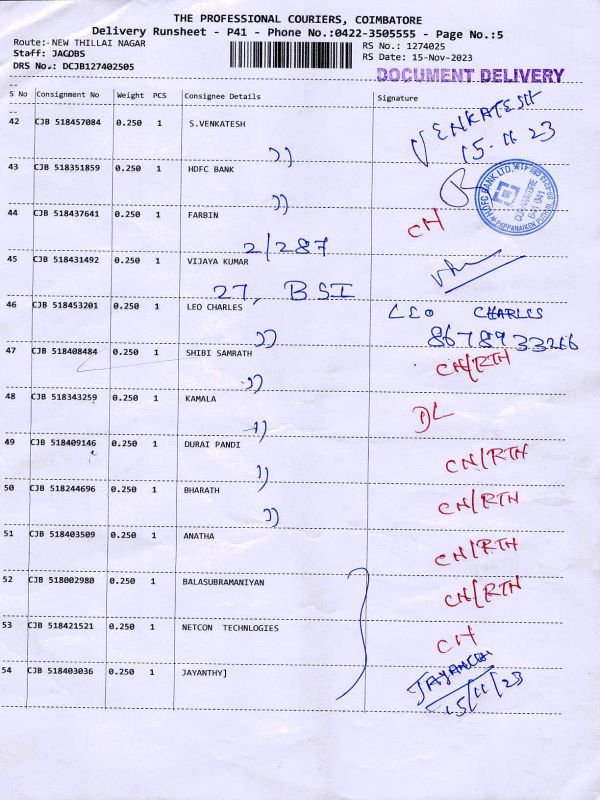 THE PROFESSIONAL COURIERS, COIMBATORE
Delivery Runsheet - P41 - Phone No.:0422-3505555 - Page No.:5
Route:- NEW THILLAI NAGAR
RS No.: 1274025
Staff: JACOBS
RS Date: 15-Nov-2023
DRS No.: DCJB127402505
DOCUMENT DELIVERY
S No Consignment No Weight PCS Consignee Details Signature
42 CJB 518457084 0.250 1 S.VENKATESH VENKATESH
15.11.23
43 CJB 518351859 0.250 1 HDFC BANK
HDFC BANK LTD.
44 CJB 518437641 0.250 1 FARBIN CN
2/287
45 CJB 518431492 0.250 1 VIJAYA KUMAR
27, BSI
46 CJB 518453201 0.250 1 LEO CHARLES LEO CHARLES
8678933266
47 CJB 518408484 0.250 1 SHIBI SAMRATH CN/RTH
48 CJB 518343259 0.250 1 KAMALA DL
49 CJB 518409146 0.250 1 DURAI PANDI CN/RTH
50 CJB 518244696 0.250 1 BHARATH CN/RTH
51 CJB 518403509 0.250 1 ANATHA CN/RTH
52 CJB 518002980 0.250 1 BALASUBRAMANIYAN CN/RTH
53 CJB 518421521 0.250 1 NETCON TECHNLOGIES CH
54 CJB 518403036 0.250 1 JAYANTHY]
15/11/23